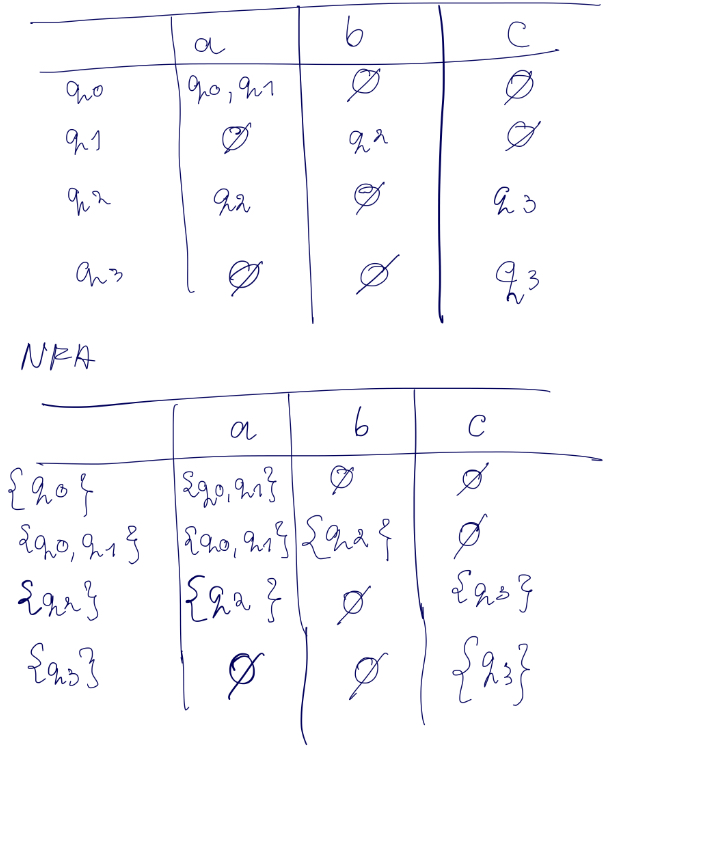 a b c
q0 q0, q1 ∅ ∅
q1 ∅ q2 ∅
q2 q2 ∅ q3
q3 ∅ ∅ q3
NFA
a b c
{q0} {q0, q1} ∅ ∅
{q0, q1} {q0, q1} {q2} ∅
{q2} {q2} ∅ {q3}
{q3} ∅ ∅ {q3}